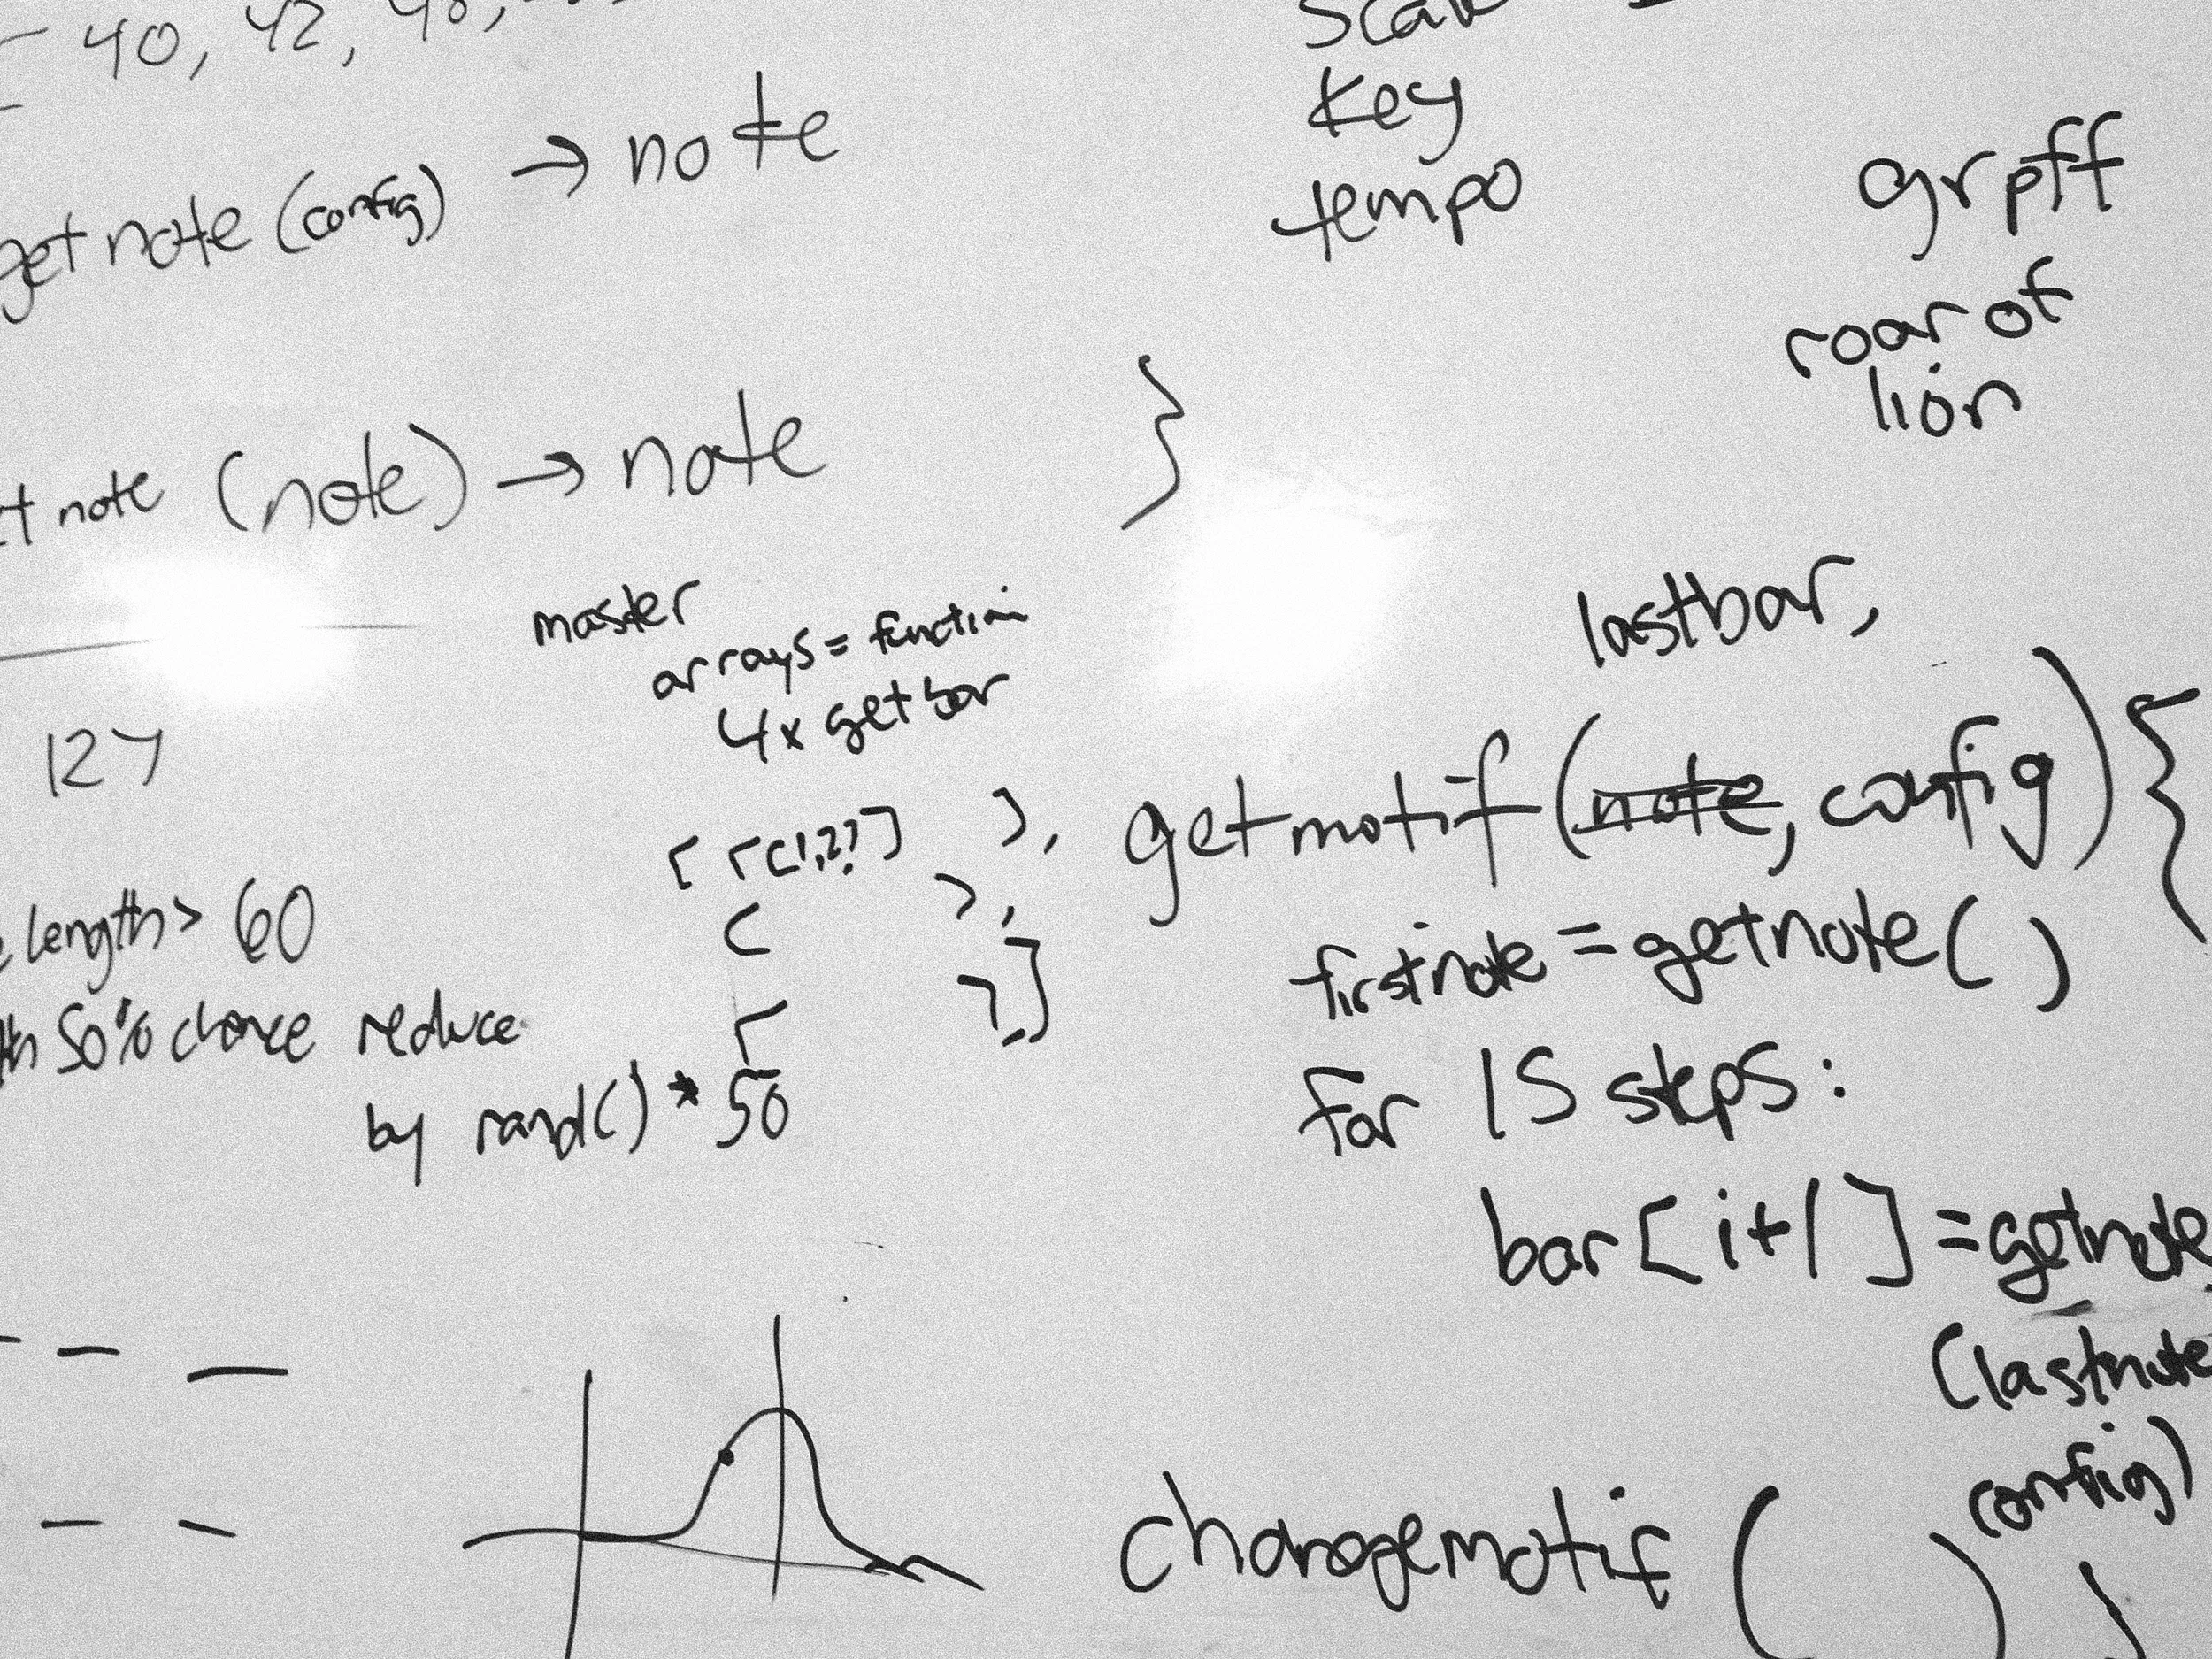 40, 42, 48,
getnote (config) → note
note (note) → note
127
length > 60
50% chance reduce
by rand() * 50
master
arrays = function
4x getbar
[ [(1,2?] ],
key
tempo
}
grpff
roar of
lion
lastbar,
getmotif (note, config) {
firstnote = getnote( )
for 15 steps:
bar [ i+1 ] = getnote
(lastnote
config)
changemotif ( )